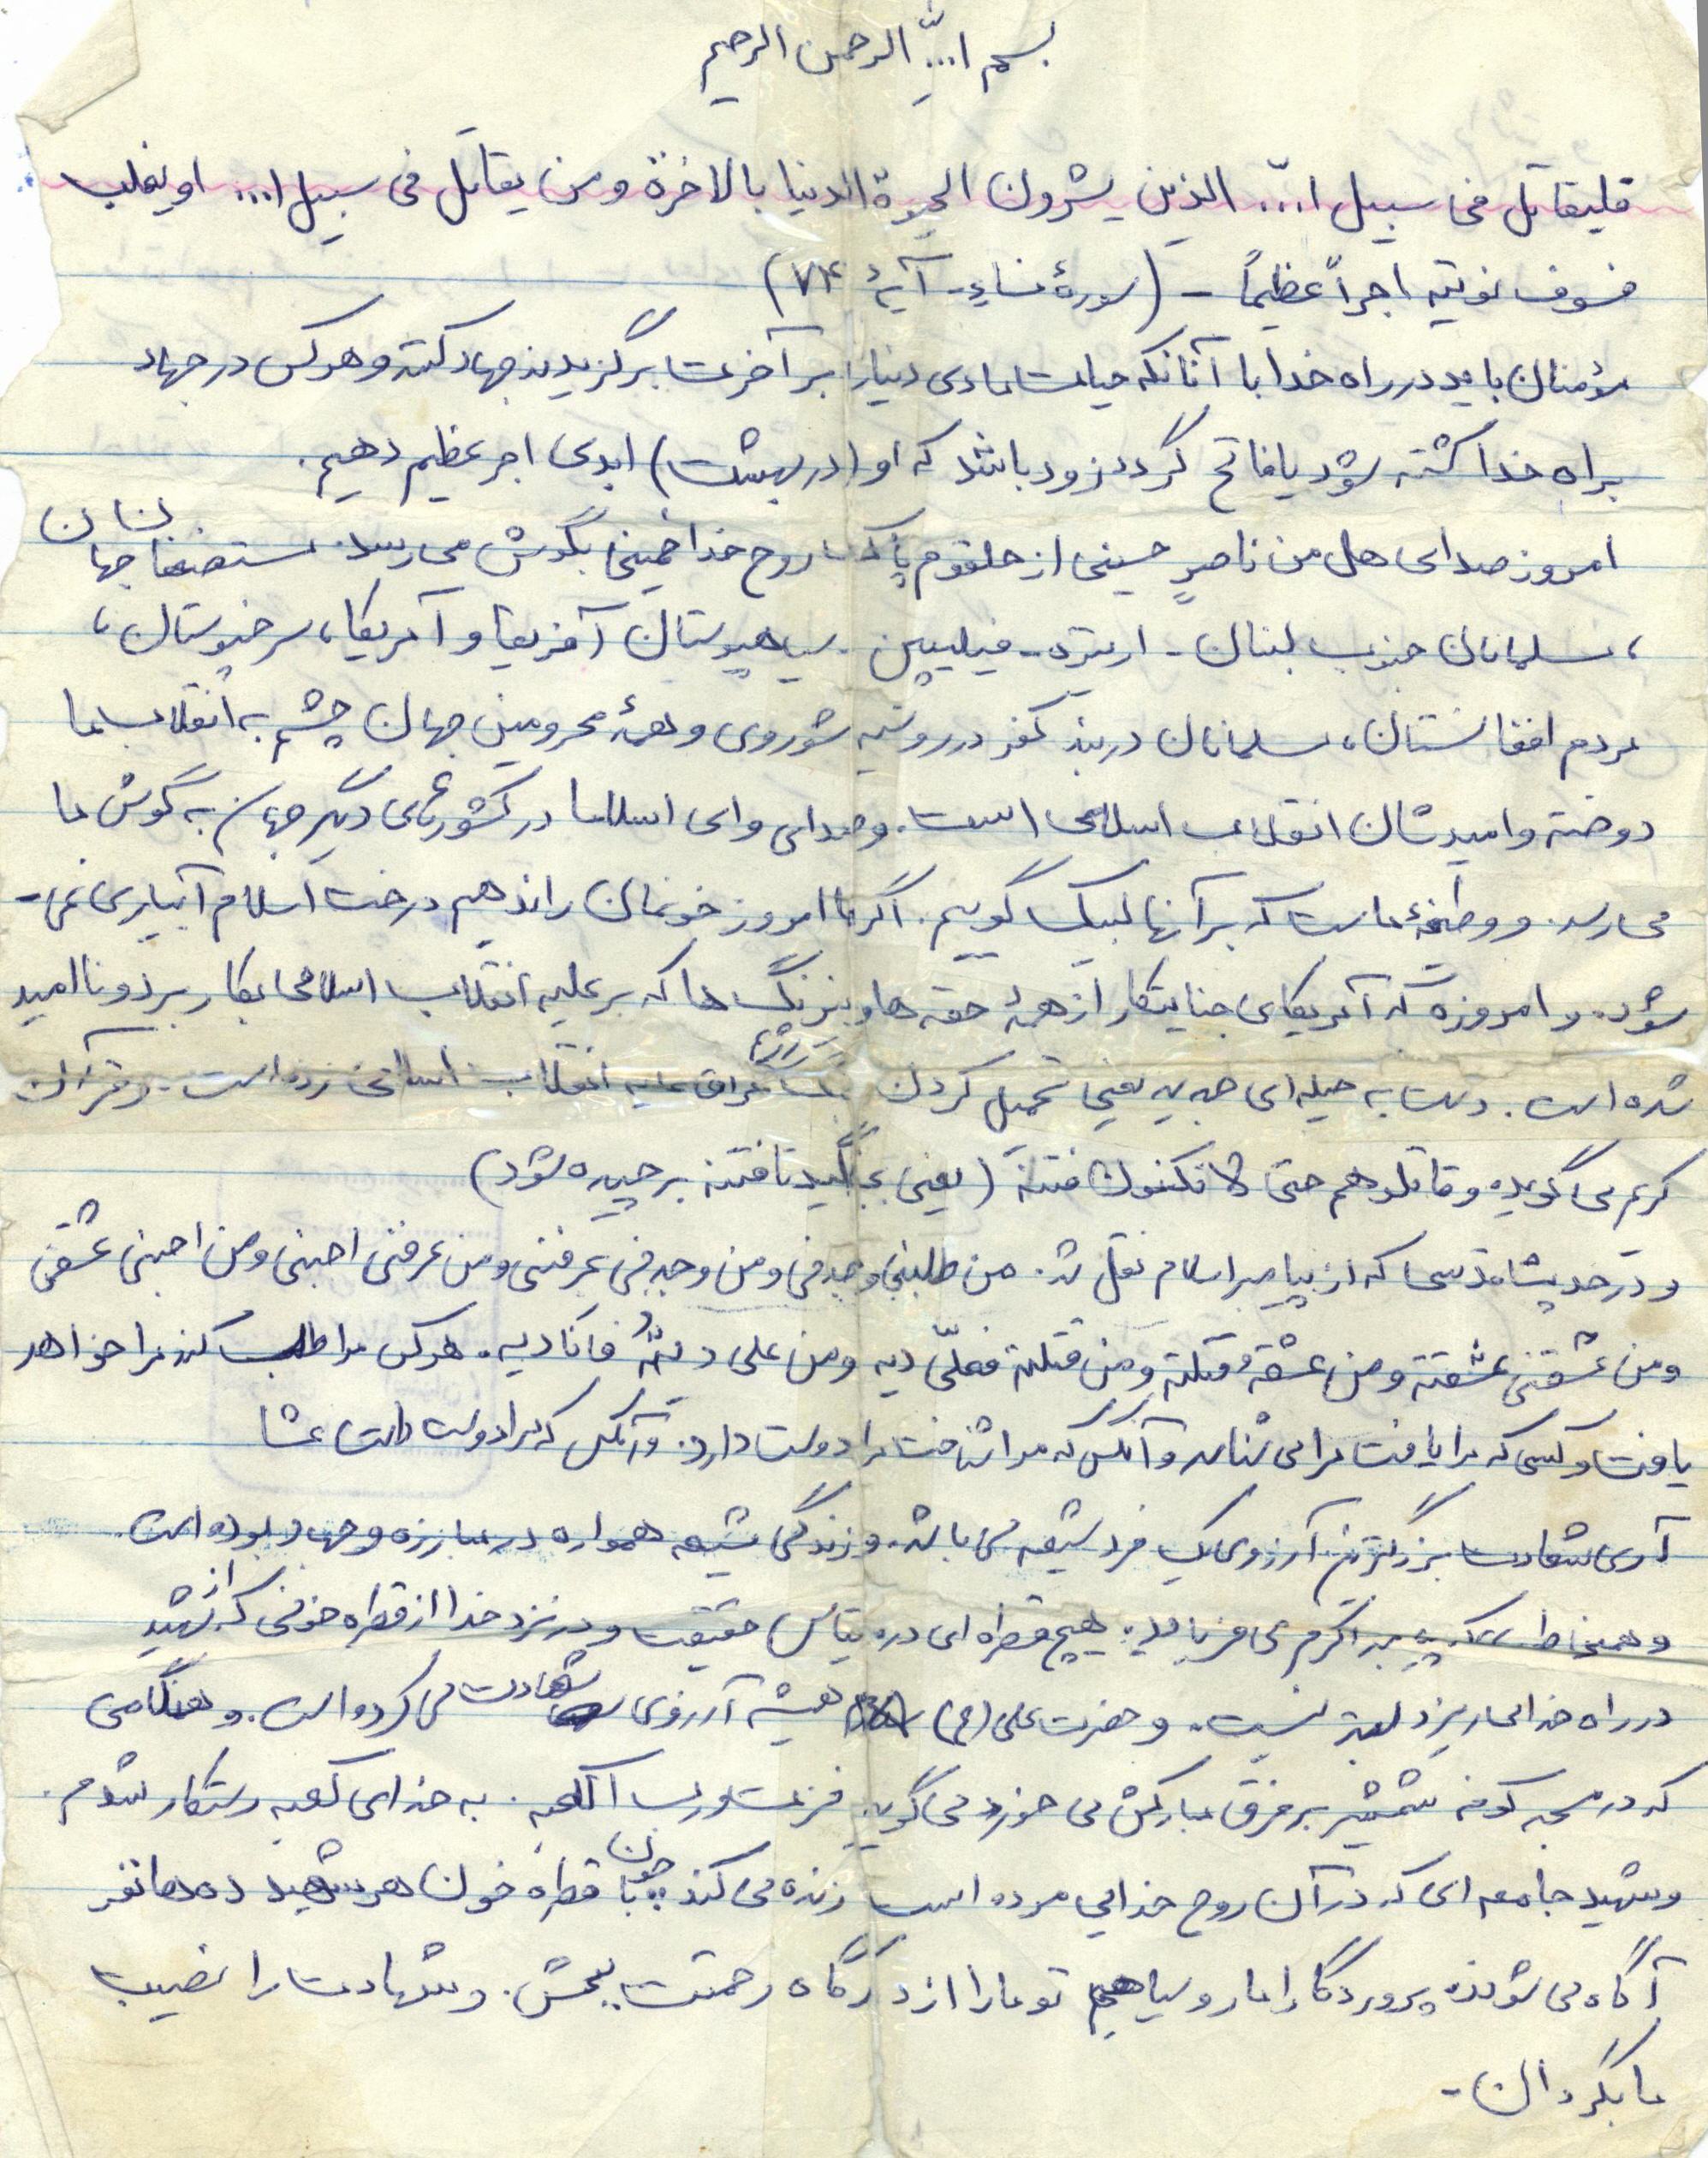 بسم ا... الرحمن الرحیم
فلیقاتل فی سبیل ا... الذین یشرون الحیوة الدنیا بالاخرة ومن یقاتل فی سبیل ا... او یغلب
فسوف نوتیه اجراً عظیماً - (سورهٔ نساء - آیهٔ ۷۴)
مؤمنان باید در راه خدا با آنانکه حیات مادی دنیا را بر آخرت برگزیدند جهاد کنند و هر کس در جهاد
براه خدا کشته شود یا فاتح گردد زود باشد که او (در بهشت) ابدی اجر عظیم دهیم.
امروز صدای هل من ناصرٍ حسینی از حلقوم پاک روح خدا خمینی بگوش می رسد. مستضعفان جهان
، مسلمانان جنوب لبنان - اریتره - فیلیپین - سیاهپوستان آفریقا و آمریکا، سرخپوستان،
مردم افغانستان، مسلمانان در بند کفر در روسیه شوروی و همهٔ محرومین جهان چشم به انقلاب ما
دوخته و امیدشان انقلاب اسلامی است. و صدای وای اسلاما در کشورهای دیگر جهان به گوش ما
می رسد. و وظیفهٔ ماست که بر آنها لبیک گوییم. اگر ما امروز خونمان را ندهیم درخت اسلام آبیاری نمی-
شود. و امروزه که آمریکای جنایتکار از همهٔ حقه ها و نیرنگ ها که بر علیه انقلاب اسلامی بکار برد و ناامید
شده است. دست به حیله ای جدید یعنی تحمیل کردن جنگ عراق علیه انقلاب اسلامی زده است. و قرآن
کریم می گوید: وقاتلوهم حتی لا تکون فتنة (یعنی بجنگید تا فتنه برچیده شود)
و در حدیث قدسی که از پیامبر اسلام نقل شد. من طلبنی وجدنی ومن وجدنی عرفنی ومن عرفنی احبنی ومن احبنی عشقنی
ومن عشقنی عشقته ومن عشقتهُ قتلته ومن قتلته فعلیّ دیه ومن علی دیتهُ فانا دیه. هر کس مرا طلب کند مرا خواهد
یافت و کسی که مرا یافت مرا می شناسد و آنکس که مرا شناخت مرا دوست دارد. و آنکس که مرا دوست داشت عشا
آری شهادت بزرگترین آرزوی یک فرد شیعه می باشد. و زندگی شیعه همواره در مبارزه و جهاد بوده است.
و همچنا پیامبر اکرم می فرماید: هیچ قطره ای در مقیاس حقیقت و در نزد خدا از قطره خونی که از شهید
در راه خدا می ریزد بهتر نیست. و حضرت علی (ع) همیشه آرزوی شهادت می کرده است. و هنگامی
که در مسجد کوفه شمشیر بر فرق مبارکش می خورد می گوید: فزت و رب الکعبه. به خدای کعبه رستگار شدم.
و شهید جامعه ای که در آن روح خدایی مرده است زنده می کند. چون با قطره خون هر شهید ده ها نفر
آگاه می شوند. پروردگارا ما روسیاهیم تو ما را از درگاه رحمتت ببخش. و شهادت را نصیب
ما بگردان -